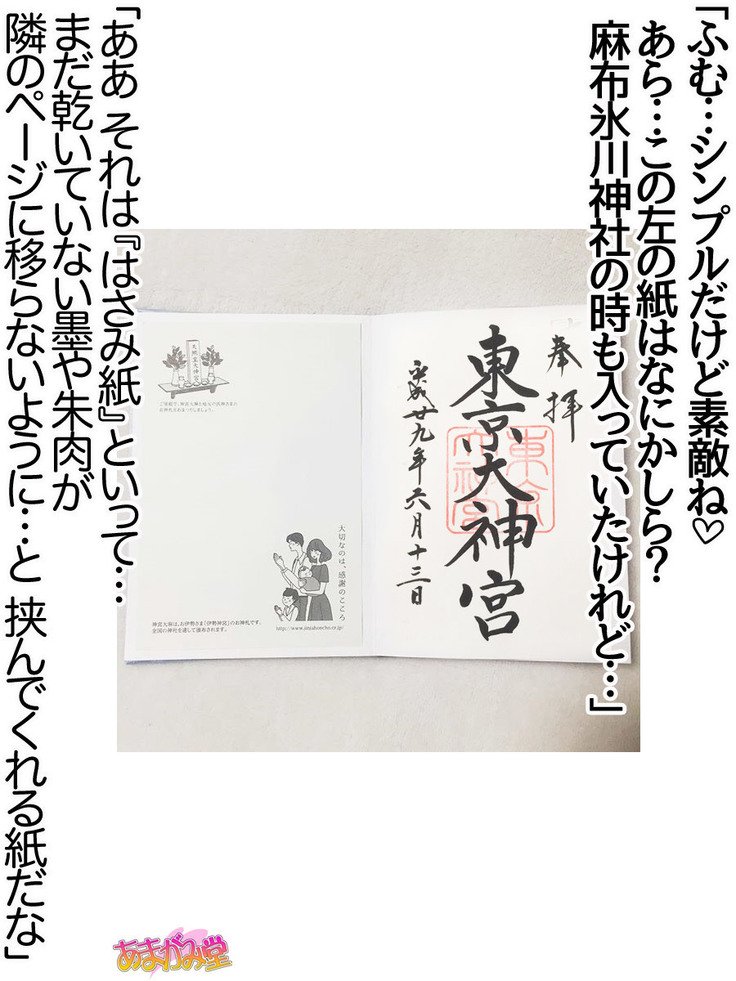 「ふむ…シンプルだけど素敵ね♡
あら…この左の紙はなにかしら？
麻布氷川神社の時も入っていたけれど…」
奉拝
東京大神宮
東京大神宮
平成廿九年六月十三日
天照皇大神宮
ご家庭で、神宮大麻と地元の氏神さまの
お神札をおまつりしましょう。
大切なのは、感謝のこころ
神宮大麻は、お伊勢さま（伊勢神宮）のお神札です。
全国の神社を通して頒布されます。
http://www.jinjahoncho.or.jp/
「ああ それは『はさみ紙』といって…
まだ乾いていない墨や朱肉が
隣のページに移らないように…と 挟んでくれる紙だな」
あまがみ堂